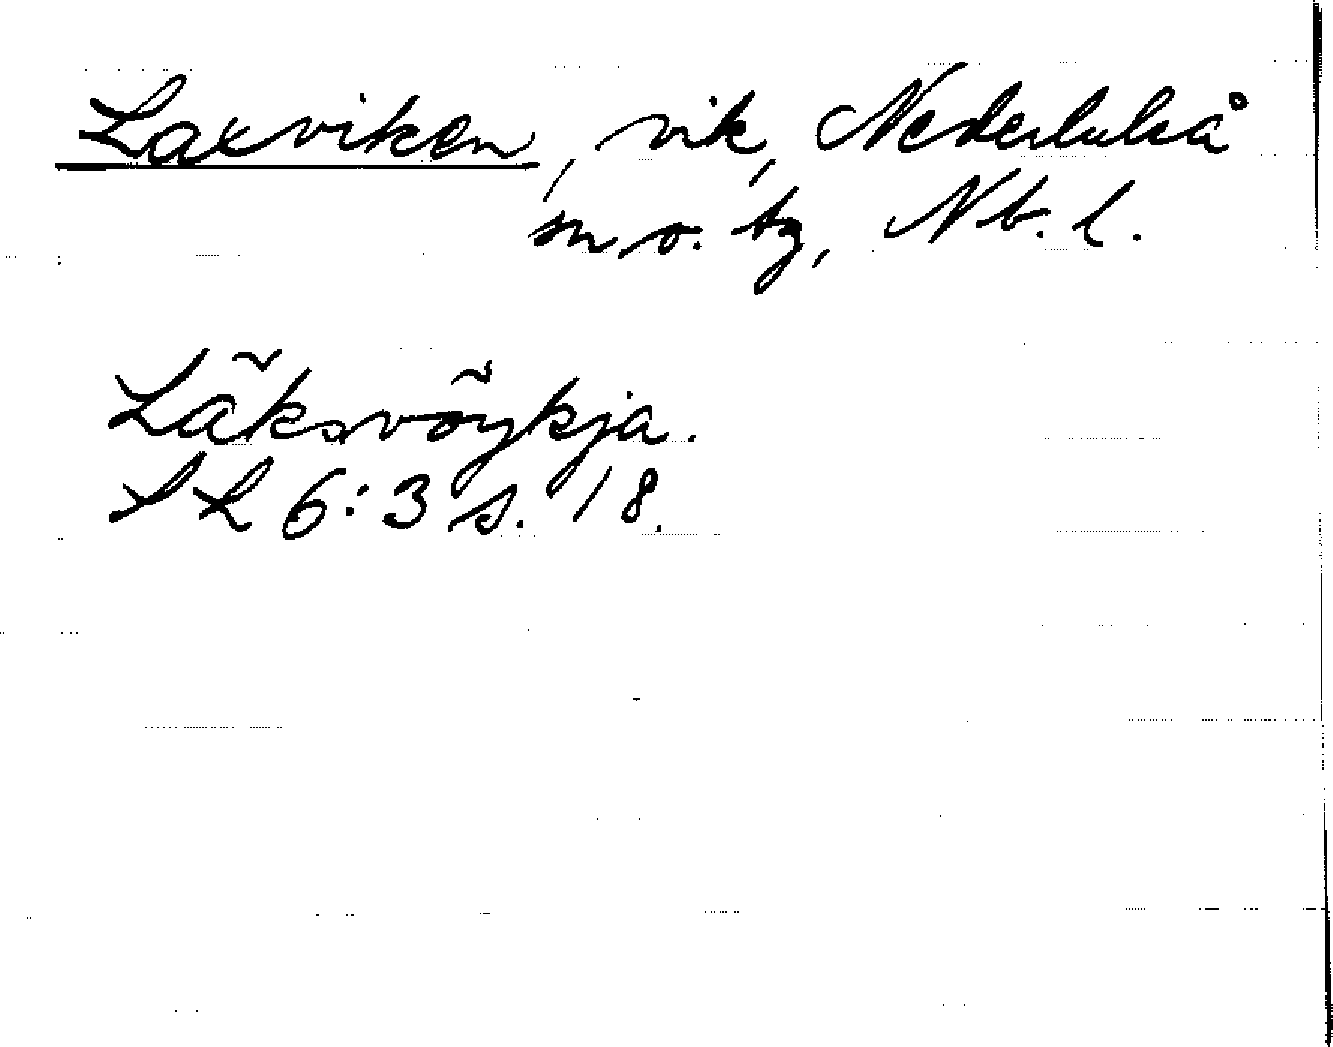 Laxviken, vik, Nederluleå
sn o. tg, Nb. l.
Läksvöykja.
SL 6:3 s. 18.